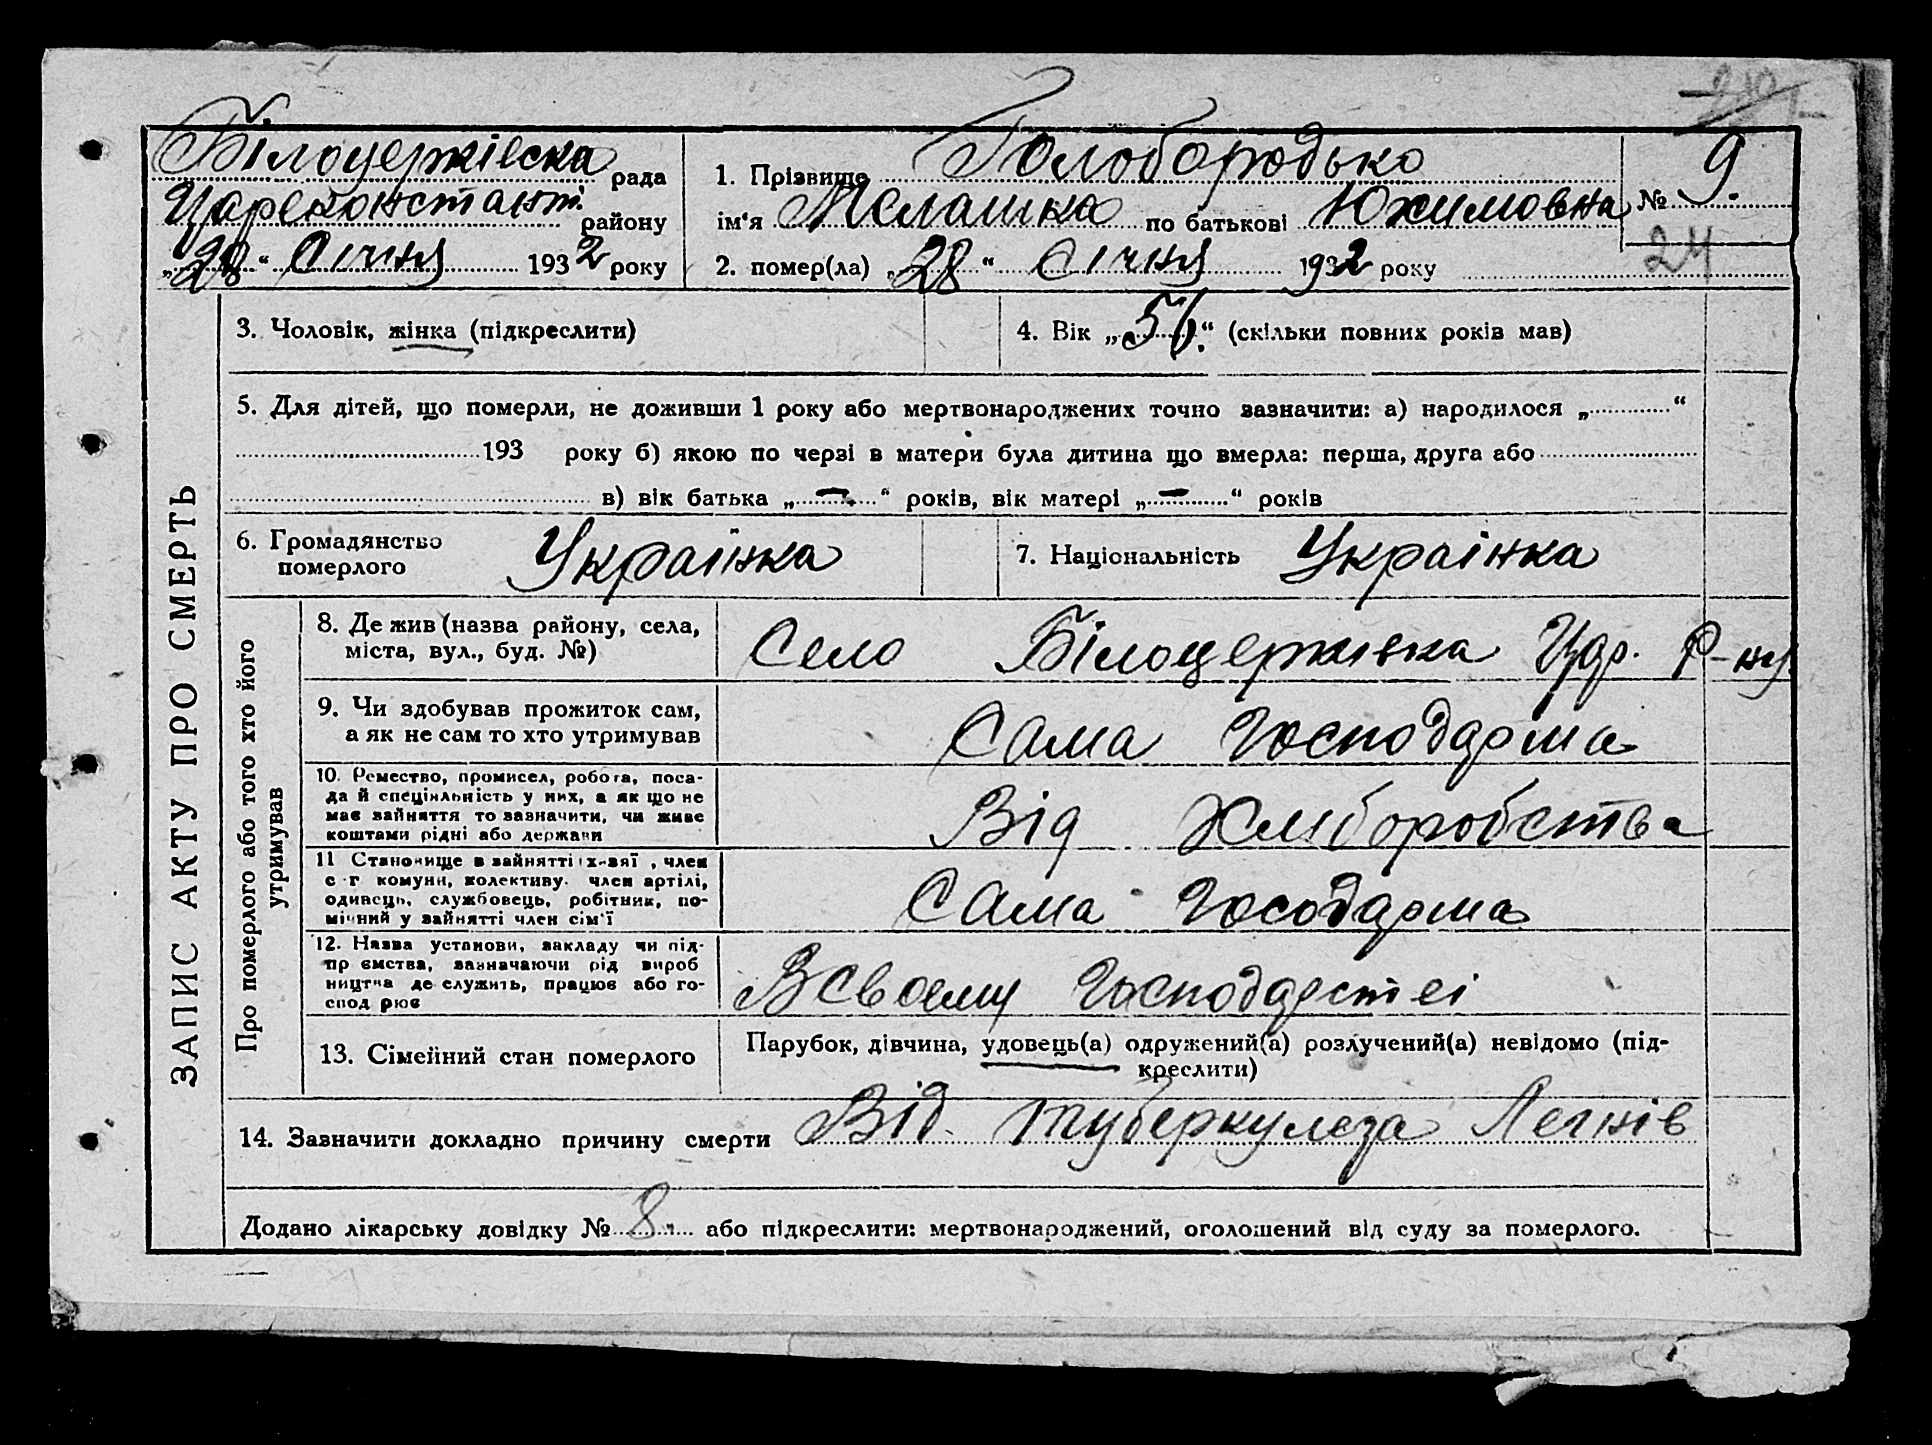 Білоцерківска рада
Цареконстант. району
„28“ Січня 1932 року
1. Прізвище Голобородько
ім‘я Мелашка по батькові Юхимовна
№ 9.
2. помер(ла) „28“ Січня 1932 року
24
3. Чоловік, жінка (підкреслити)
4. Вік „56.“ (скільки повних років мав)
5. Для дітей, що померли, не доживши 1 року або мертвонароджених точно зазначити: а) народилося „ “
193 року б) якою по черзі в матери була дитина що вмерла: перша, друга або
в) вік батька „ — “ років, вік матері „ — “ років
6. Громадянство
померлого
Українка
7. Національність Українка
ЗАПИС АКТУ ПРО СМЕРТЬ
Про померлого або того хто його
утримував
8. Де жив (назва району, села,
міста, вул., буд. №)
Село Білоцерківка Цар. Р-ну
9. Чи здобував прожиток сам,
а як не сам то хто утримував
Сама Господарша
10. Ремество, промисел, робота, поса-
да й спеціяльність у них, а як що не
має зайняття то зазначити, чи живе
коштами рідні або держави
Від Хліборобства
11 Становище в зайнятті х-вяї , член
с-г комуни, колективу. член артілі,
одинець, службовець, робітник, по-
мічний у зайнятті член сім'ї
Сама Госодарша
12. Назва установи, закладу чи під-
пр ємства, зазначаючи рід вироб
ництва де служить, працює або го-
спод рює
Всвоему Господарстві
13. Сімейний стан померлого
Парубок, дівчина, удовець(а) одружений(а) розлучений(а) невідомо (під-
креслити)
14. Зазначити докладно причину смерти Від туберкулеза Легнів
Додано лікарську довідку № 8. або підкреслити: мертвонароджений, оголошений від суду за померлого.